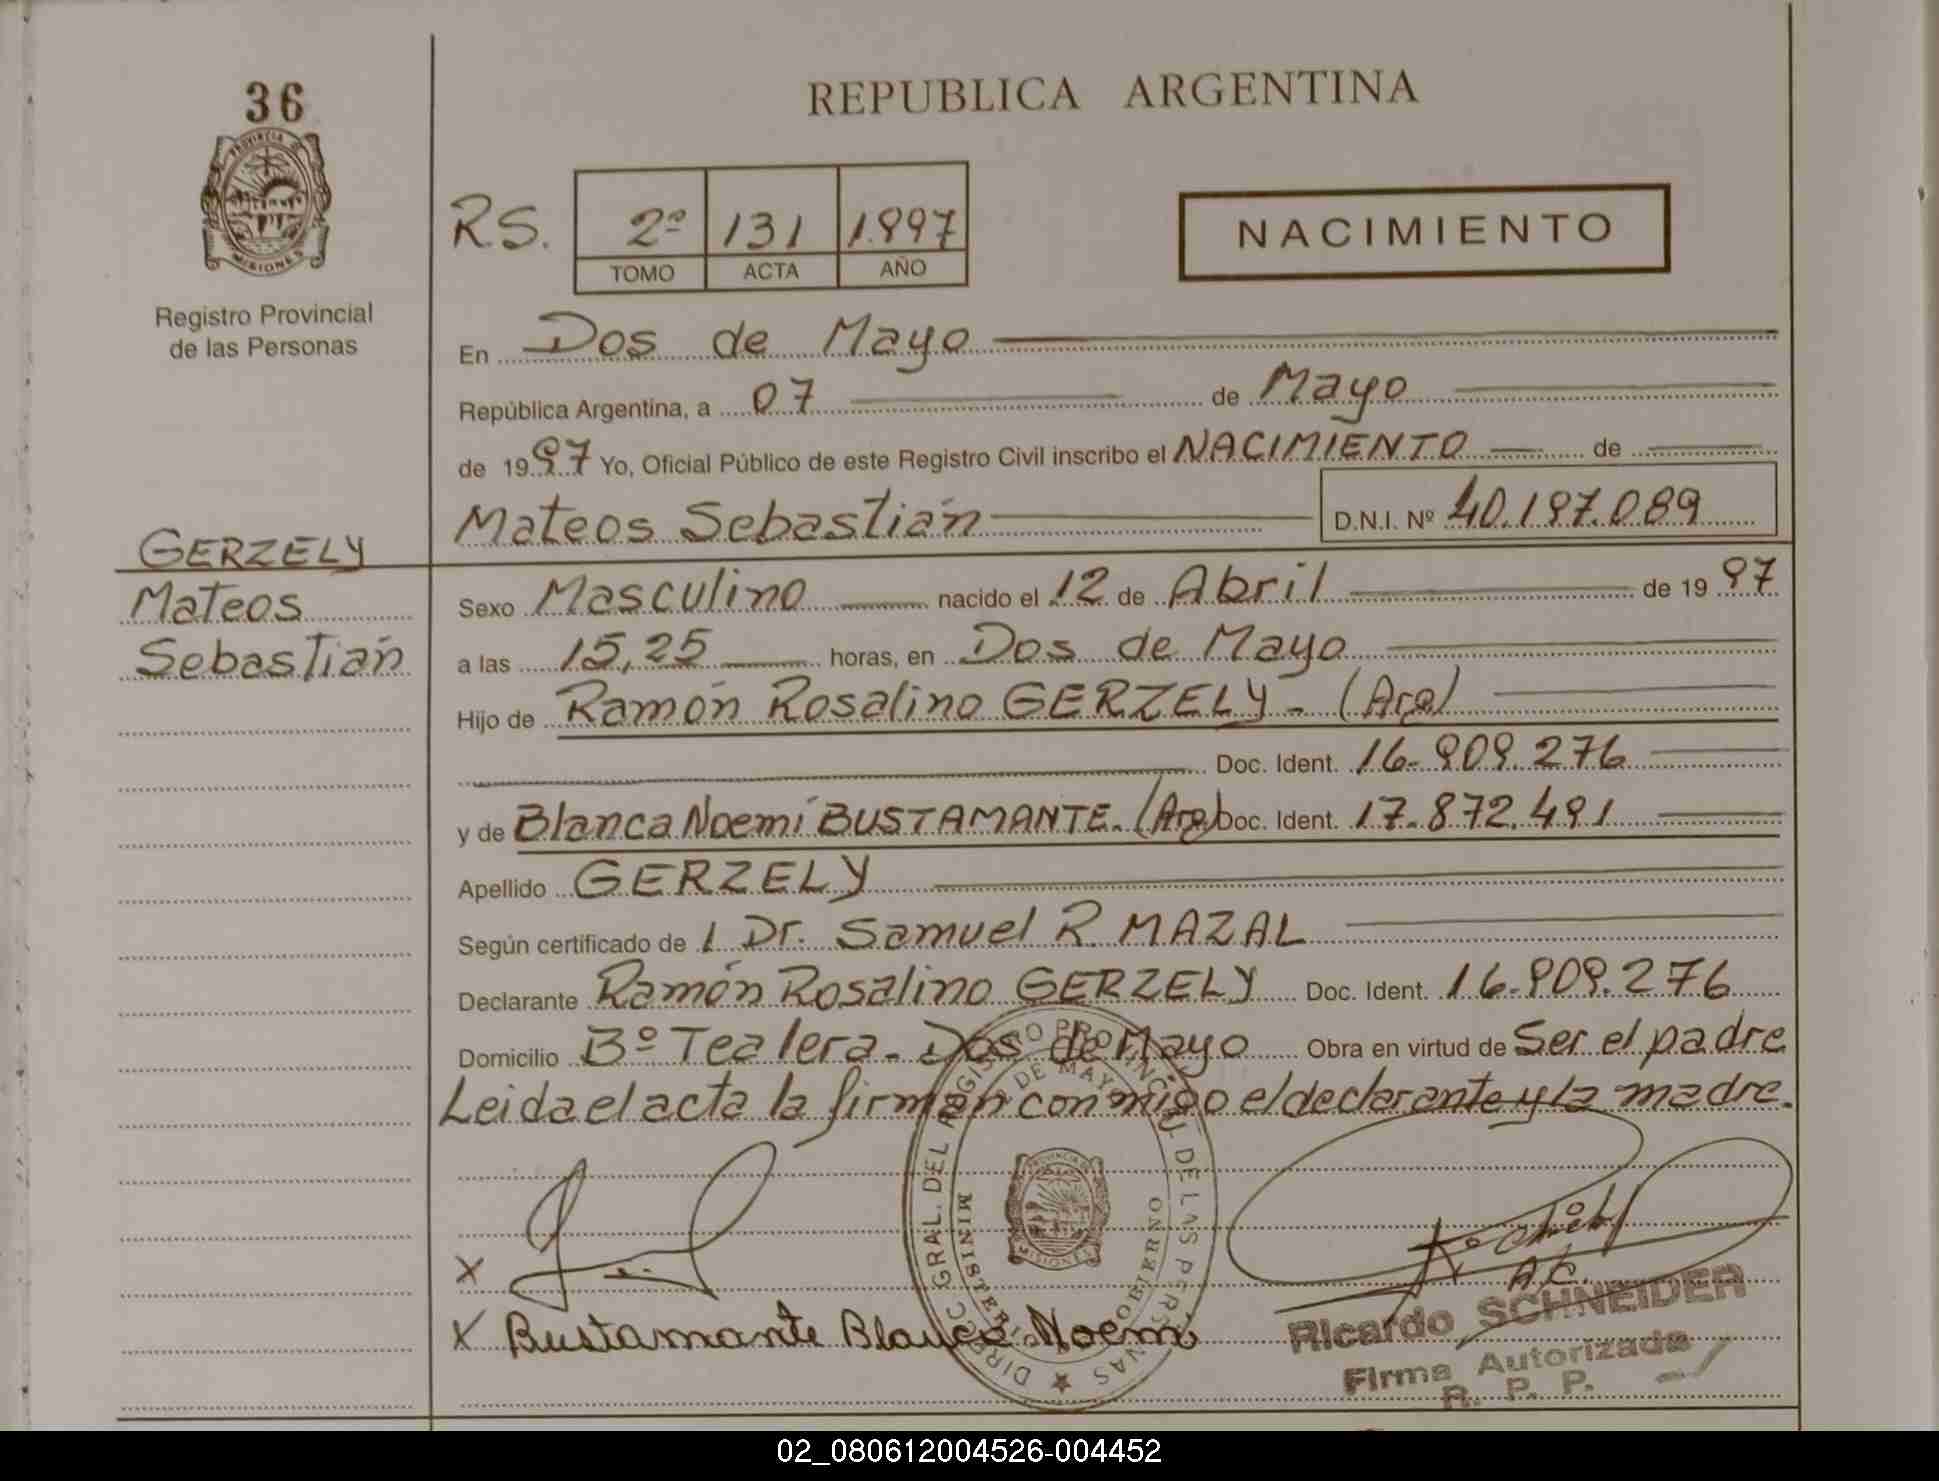 36
PROVINCIA DE
MISIONES
Registro Provincial
de las Personas
GERZELY
Mateos
Sebastián
REPUBLICA ARGENTINA
R.S. 2º 131 1.997
TOMO ACTA AÑO
NACIMIENTO
En Dos de Mayo
República Argentina, a 07 de Mayo
de 1997 Yo, Oficial Público de este Registro Civil inscribo el NACIMIENTO de
Mateos Sebastián D.N.I. Nº 40.197.089
Sexo Masculino nacido el 12 de Abril de 1997
a las 15,25 horas, en Dos de Mayo
Hijo de Ramón Rosalino GERZELY - (Arg)
Doc. Ident. 16.909.276
y de Blanca Noemí BUSTAMANTE. (Arg) Doc. Ident. 17.872.491
Apellido GERZELY
Según certificado de 1 Dr. Samuel R. MAZAL
Declarante Ramón Rosalino GERZELY Doc. Ident. 16.909.276
Domicilio Bº Tealera - Dos de Mayo Obra en virtud de Ser el padre
Leida el acta la firman conmigo el declarante y la madre.
DIRECC. GRAL. DEL REGISTRO PROVINCIAL DE LAS PERSONAS
DE MAYO
MINISTERIO GOBIERNO
MISIONES
X
X Bustamante Blanca Noemi
A.C.
Ricardo SCHNEIDER
Firma Autorizada
R. P. P.
02_080612004526-004452